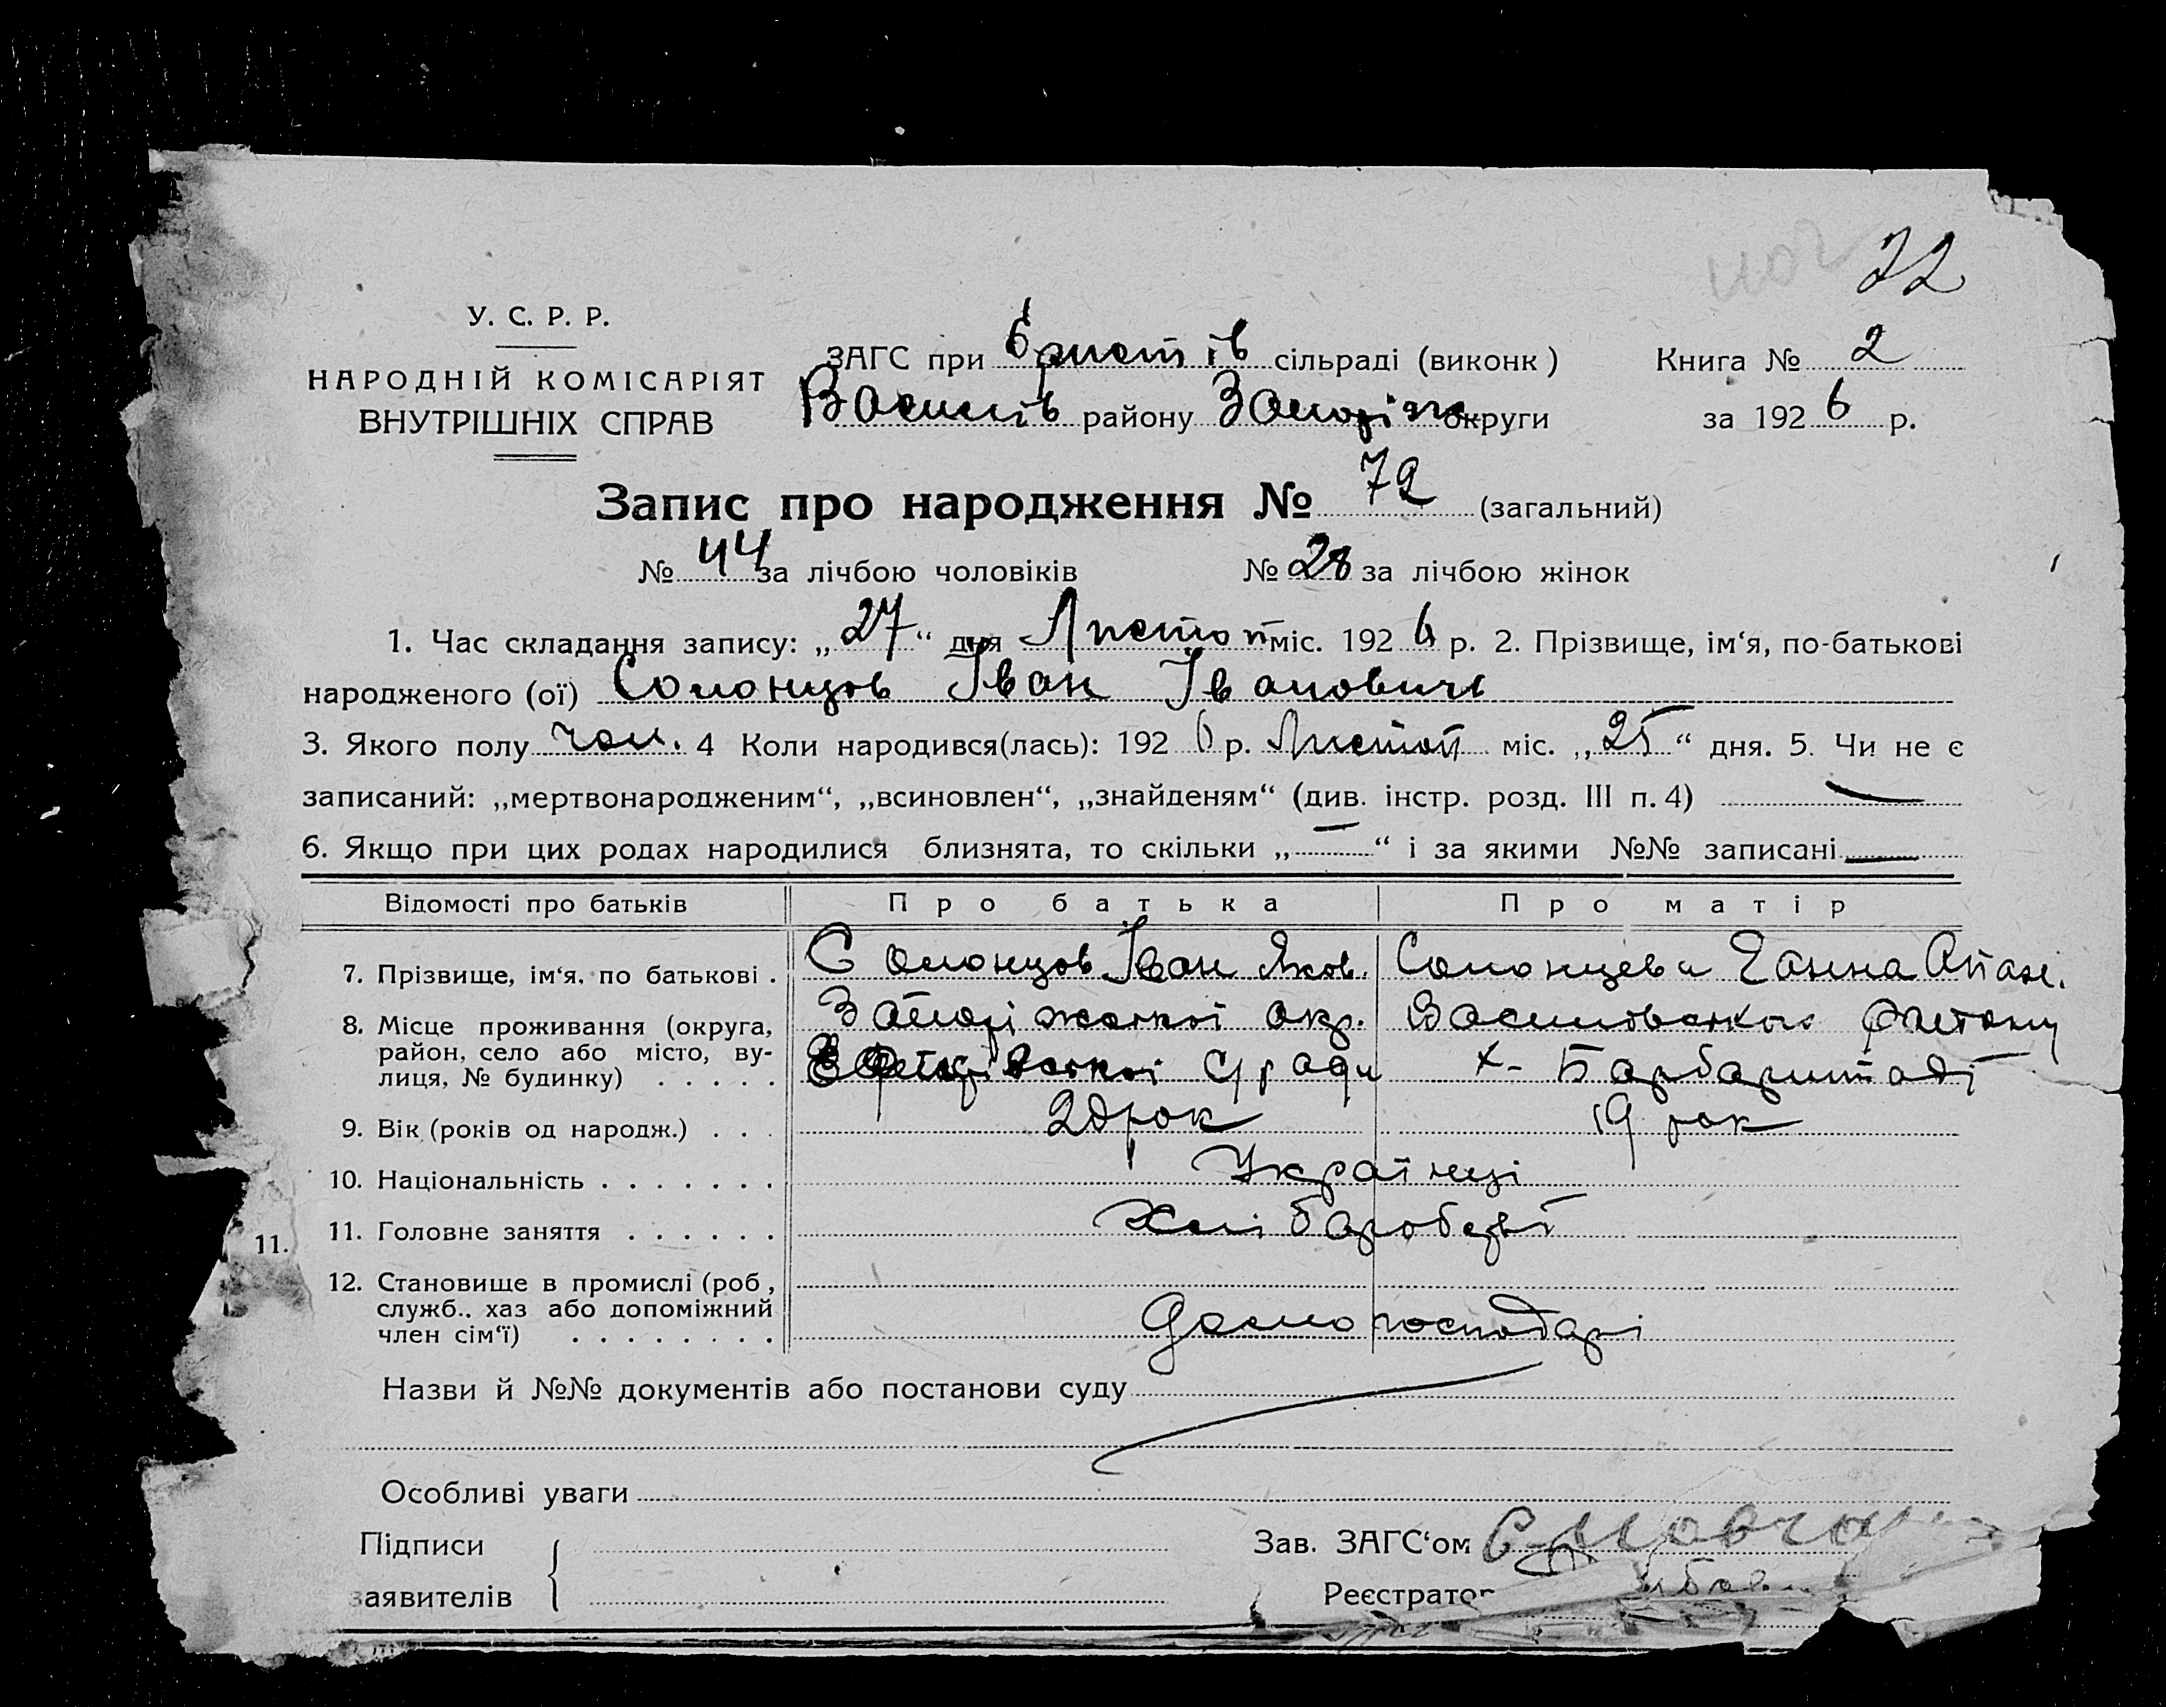 72
У. С. Р. Р.
НАРОДНІЙ КОМІСАРІЯТ
ВНУТРІШНІХ СПРАВ
ЗАГС при сільраді (виконк)
Василів району Запоріж округи
Книга № 2
за 1926 р.
Запис про народження № 72 (загальний)
№ 44 за лічбою чоловіків № 28 за лічбою жінок
1. Час складання запису: „27“ дня Листоп міс. 1926 р. 2. Прізвище, ім‘я, по-батькові
народженого (ої) Солонцов Іван Іванович
3. Якого полу чол. 4 Коли народився(лась): 1926 р. Листоп міс. „25“ дня. 5. Чи не є
записаний: „мертвонародженим“, „всиновлен“, „знайденям“ (див. інстр. розд. III п. 4) —
6. Якщо при цих родах народилися близнята, то скільки „—“ і за якими №№ записані —
Відомості про батьків Про батька Про матір
7. Прізвище, ім‘я, по батькові . Солонцов Іван Яков. Солонцева Ганна Апан.
8. Місце проживання (округа, Запоріжської окр. Василівського
район, село або місто, ву-
лиця, № будинку) . . . . . х-
9. Вік (років од народж.) . . . рок 19 рок
10. Національність . . . . . . . Українці
11.
11. Головне заняття . . . . . . Хлібороби
12. Становище в промислі (роб,
служб., хаз або допоміжний
член сім‘ї) . . . . . . . . господарі
Назви й №№ документів або постанови суду
Особливі уваги
Підписи
заявителів
Зав. ЗАГС‘ом
Реєстратор